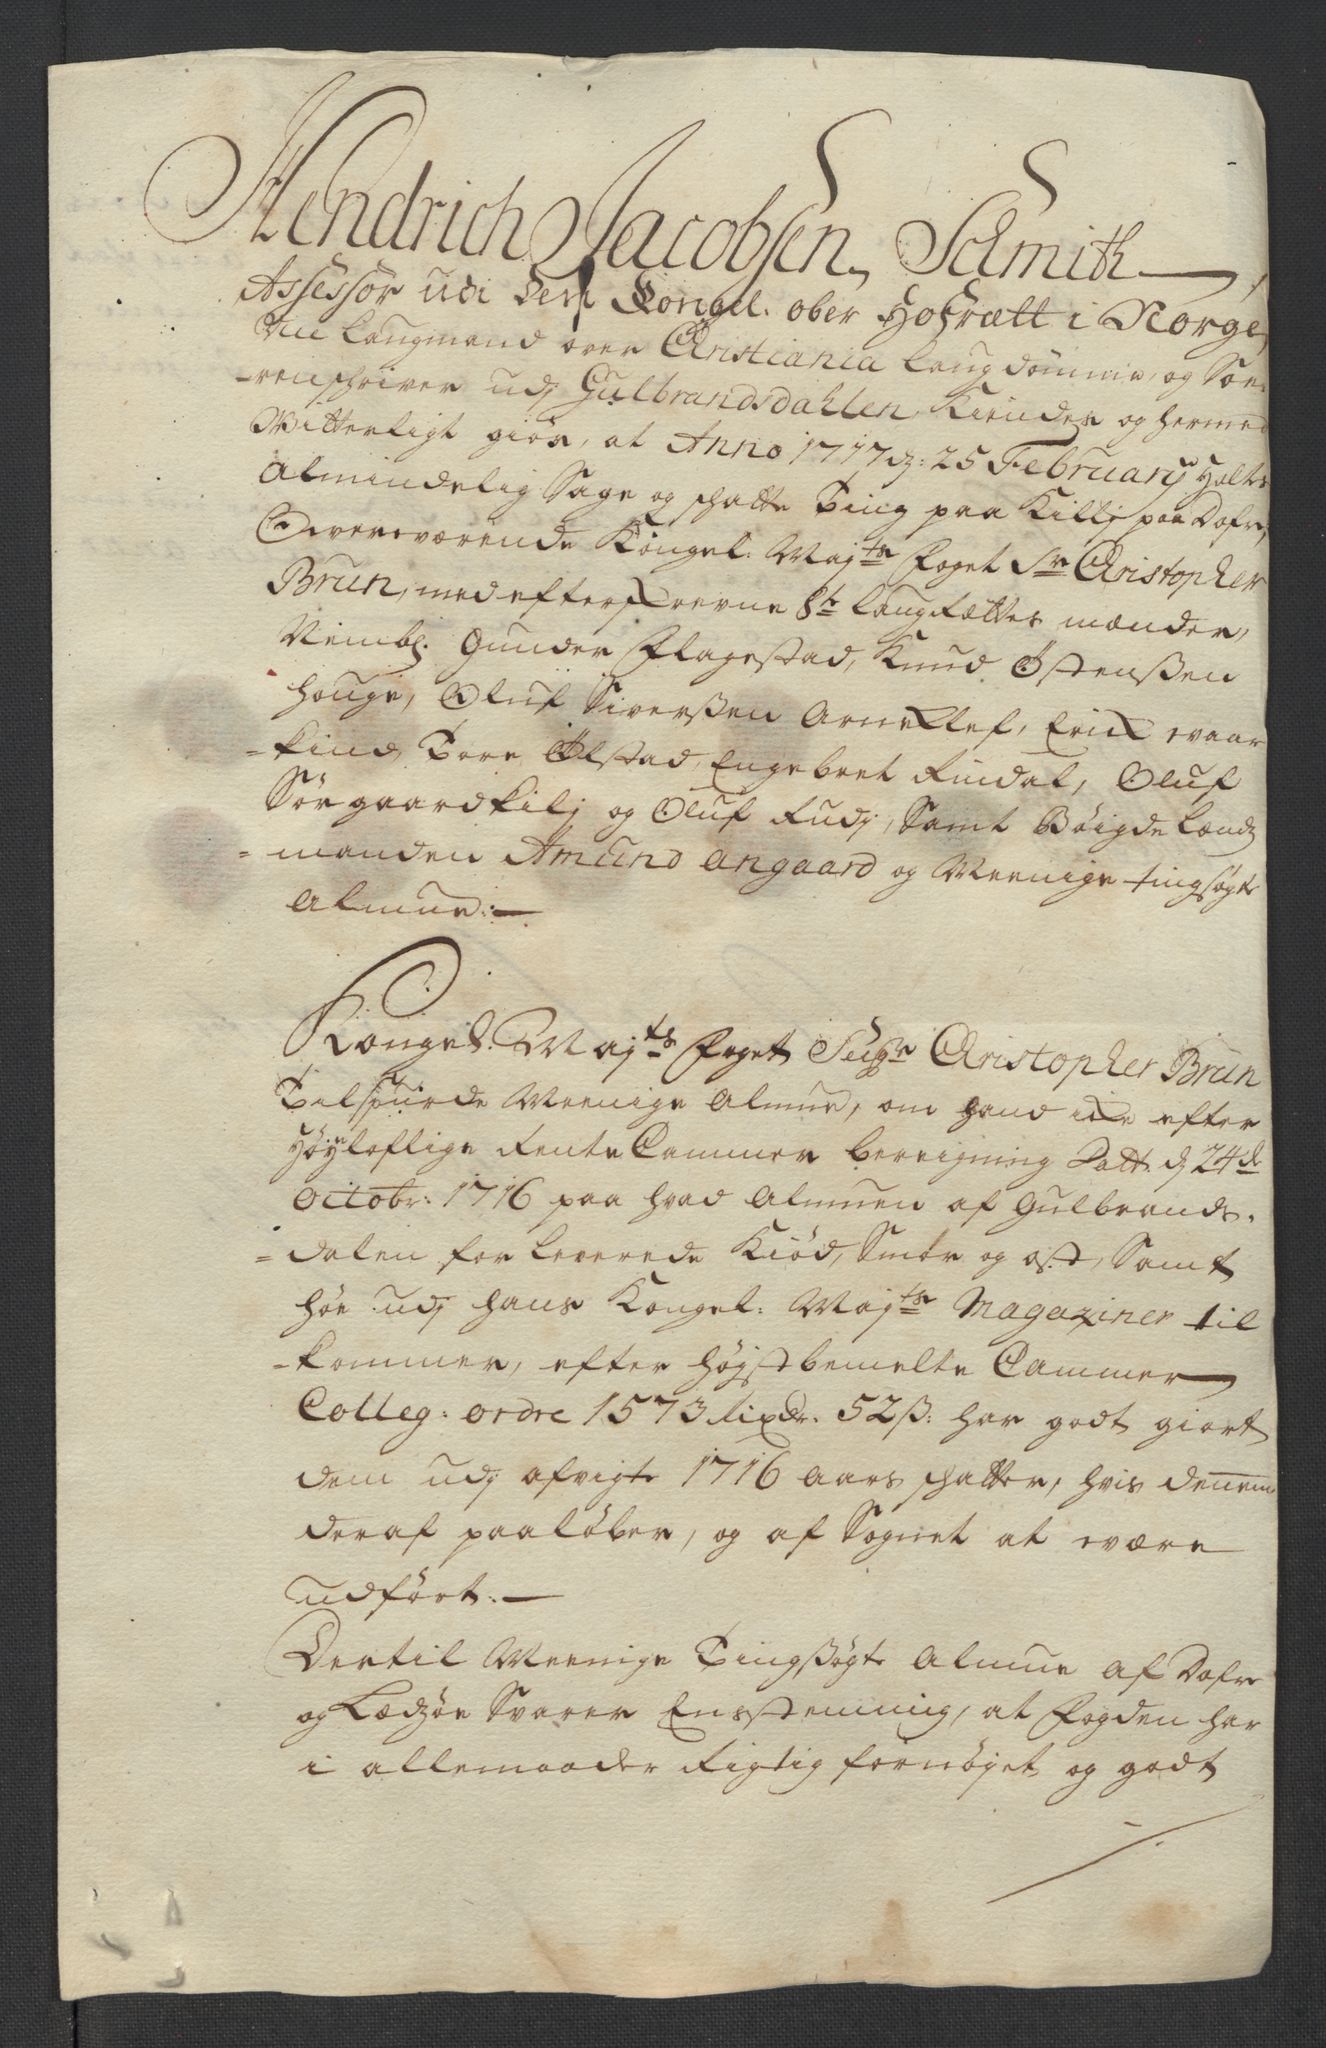 Hendrich Jacobsen, Schmith
Assessor udi den Kongel. ober Hofrætt i Norge,
Vice Laugmand over Christiania Laugdömme, og Soe-
-renschriver udj Gulbrandsdahlen, Kiendes og hermed
Witterligt giör, at Anno 1717 d: 25 February holtes
Almindelig Sage og schatte Ting paa Killj paa Dofre,
Overværende Kongel: Majts Foget Sr Christopher
Brun, med efterschrevne 8te Laugrættes mænder,
Nembl. Gunder Flagestad, Knud Østenssen
Houge, Oluf Siverssen Arneklef, Erich
-kind, Tore Ølstad, Engebret Rindal, Oluf
Sörgaard Kilj og Oluf Rudj, Samt Böigde Lænds
-manden Amund Angaard og Meenige tingsögte
Almue:
Kongel. Majts Foget Seigr Christopher Brun
Tilspurde Meenige Almue, om hand icke efter
Höyloflige Rente Cammer beregning Datt. d 24de
Octobr: 1716 paa hvad Almuen af Gulbrands-
-dalen for leverede Kiöd, Smör og ost, Samt
höe udj hans Kongel: Majts Magaziner til
-kommer, efter högstbemelte Cammer
Colleg: ordre 1573 Rixdr. 52 ß: har godt giort
dem udj afvigte 1716 Aars schatter, hvis dennem
deraf paalöber, og af Sognet at være
udfört.
Dertil Meenige Tingssögte Almue af Dofre
og Lædsöe Svarer Eenstemmig, at Fogden har
i allemaader Rigtig fornöyet og godt